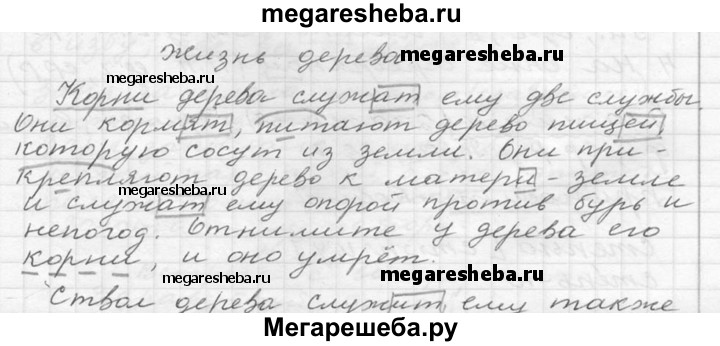 megaresheba.ru
Жизнь дерева
megaresheba.ru
megaresheba.ru
Корни дерева служат ему две службы.
Они кормят, питают дерево пищей,
которую сосут из земли. Они при-
крепляют дерево к матери-земле
и служат ему опорой против бурь и
непогод. Отнимите у дерева его
корни, и оно умрёт.
megaresheba.ru
megaresheba.ru
Ствол дерева служит ему также
Мегарешеба.ру